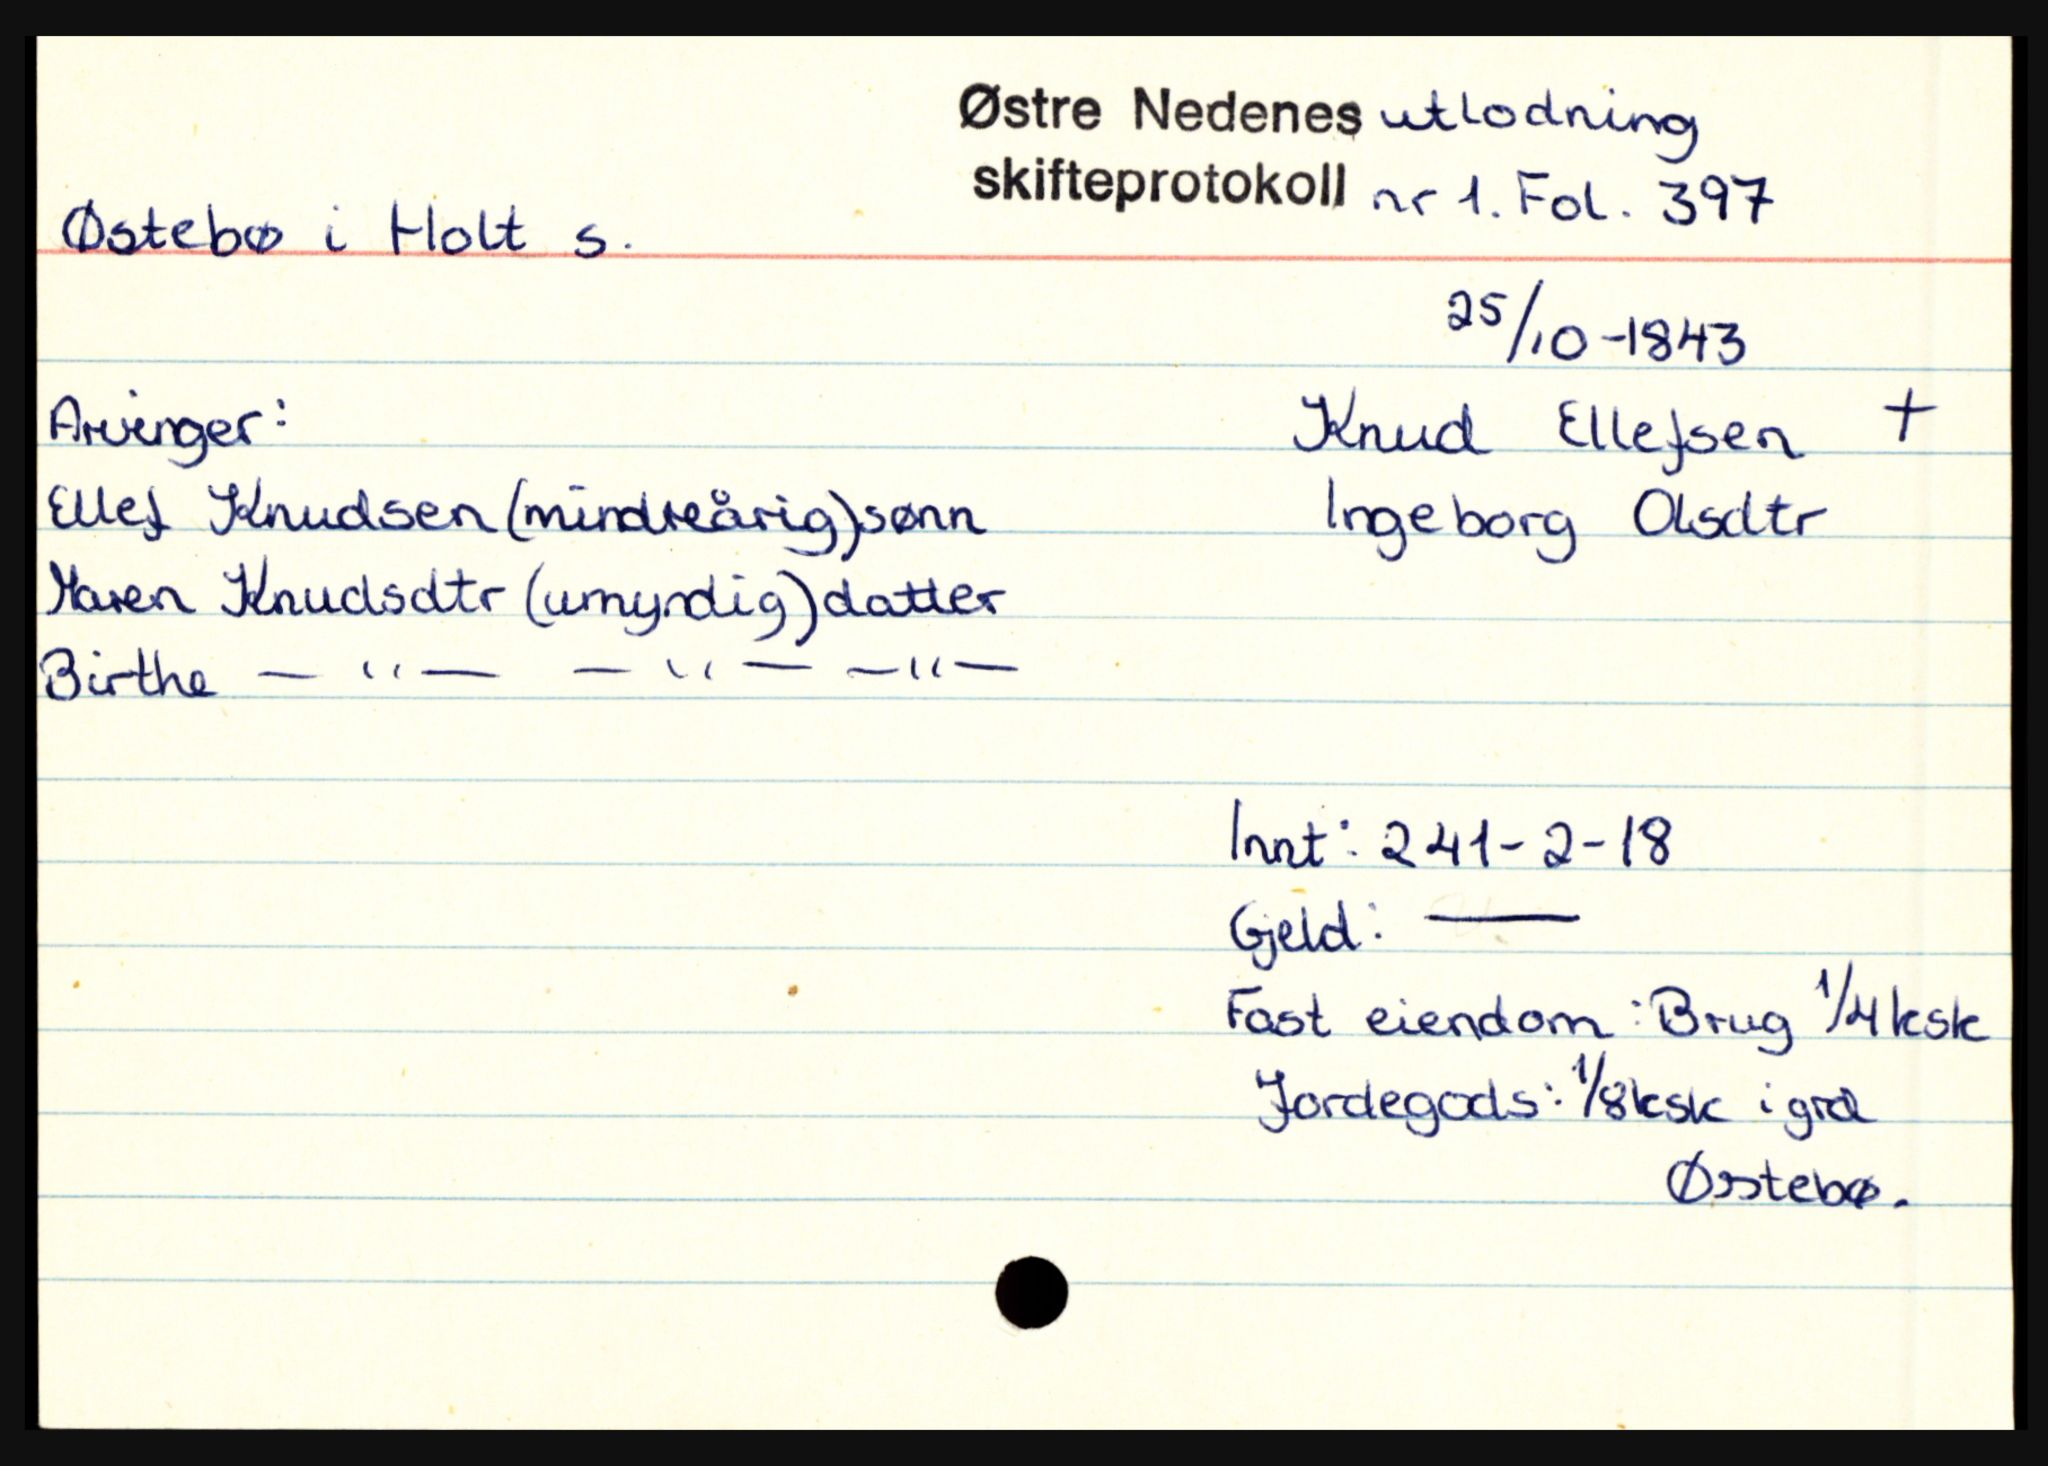 Østre Nedenes utlodning
skifteprotokoll nr 1. Fol. 397
Østebø i Holt s.
25/10-1843
Arvinger:
Knud Ellefsen +
Ellef Knudsen (mindreårig) sønn
Ingeborg Olsdtr
Maren Knudsdtr (umyndig) datter
Birthe — " — — " — — " —
Innt: 241-2-18
Gjeld: —
Fast eiendom: Brug 1/4 ksk
Jordegods: 1/8 ksk i grd
Østebø.